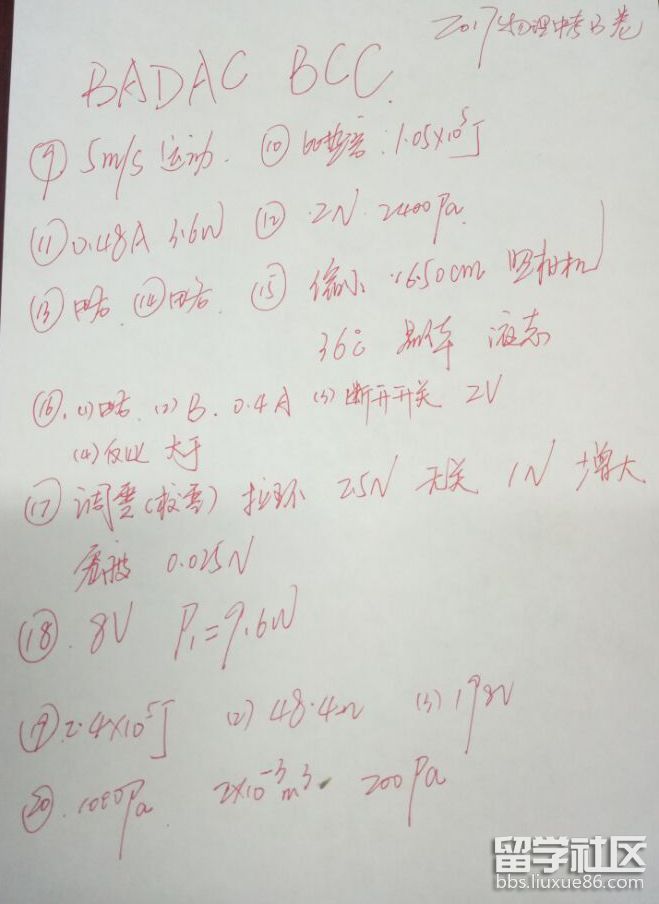 2017物理中考B卷
BADAC BCC
⑨ 5m/s 运动. ⑩ 比热容: 1.05×10⁵J
⑪ 0.48A 3.6W ⑫ 2N. 2400Pa.
⑬ 略. ⑭ 略. ⑮ 缩小 16.50cm 照相机
36℃ 晶体 液态
⑯. (1) 略. (2) B. 0.4A (3) 断开开关 2V
(4) 反比 大于
⑰ 调零(校零) 拉环 2.5N 无关 1N 增大
0.025N
⑱. 8V P₁=9.6W
⑲. 2.4×10⁵J (2) 48.4Ω (3) 198V
⑳. 1000Pa 2×10⁻³m³. 200Pa
留学社区
bbs.liuxue86.com